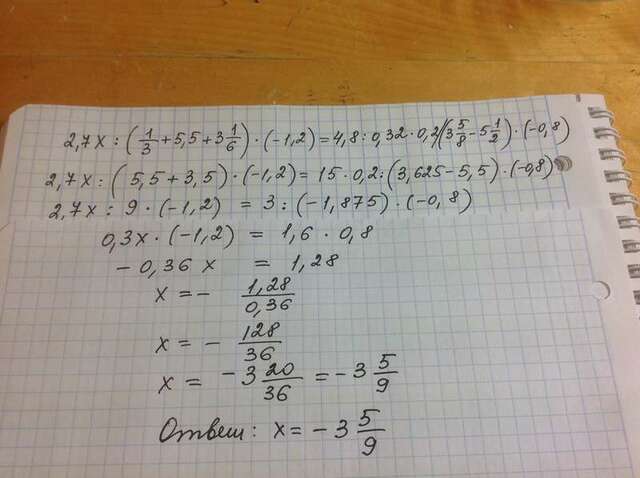 2,7x : (1/3 + 5,5 + 3 1/6) · (-1,2) = 4,8 : 0,32 · 0,2/(3 5/8 - 5 1/2) · (-0,8)
2,7x : (5,5 + 3,5) · (-1,2) = 15 · 0,2 : (3,625 - 5,5) · (-0,8)
2,7x : 9 · (-1,2) = 3 : (-1,875) · (-0,8)
0,3x · (-1,2) = 1,6 · 0,8
- 0,36 x = 1,28
x = - 1,28/0,36
x = - 128/36
x = -3 20/36 = -3 5/9
Ответ: x = -3 5/9